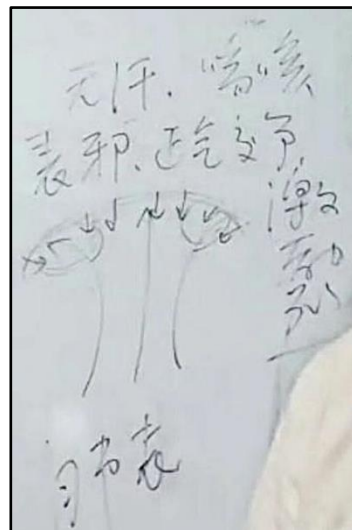 无汗、“喘”咳
表邪、正气交争、
激动
表